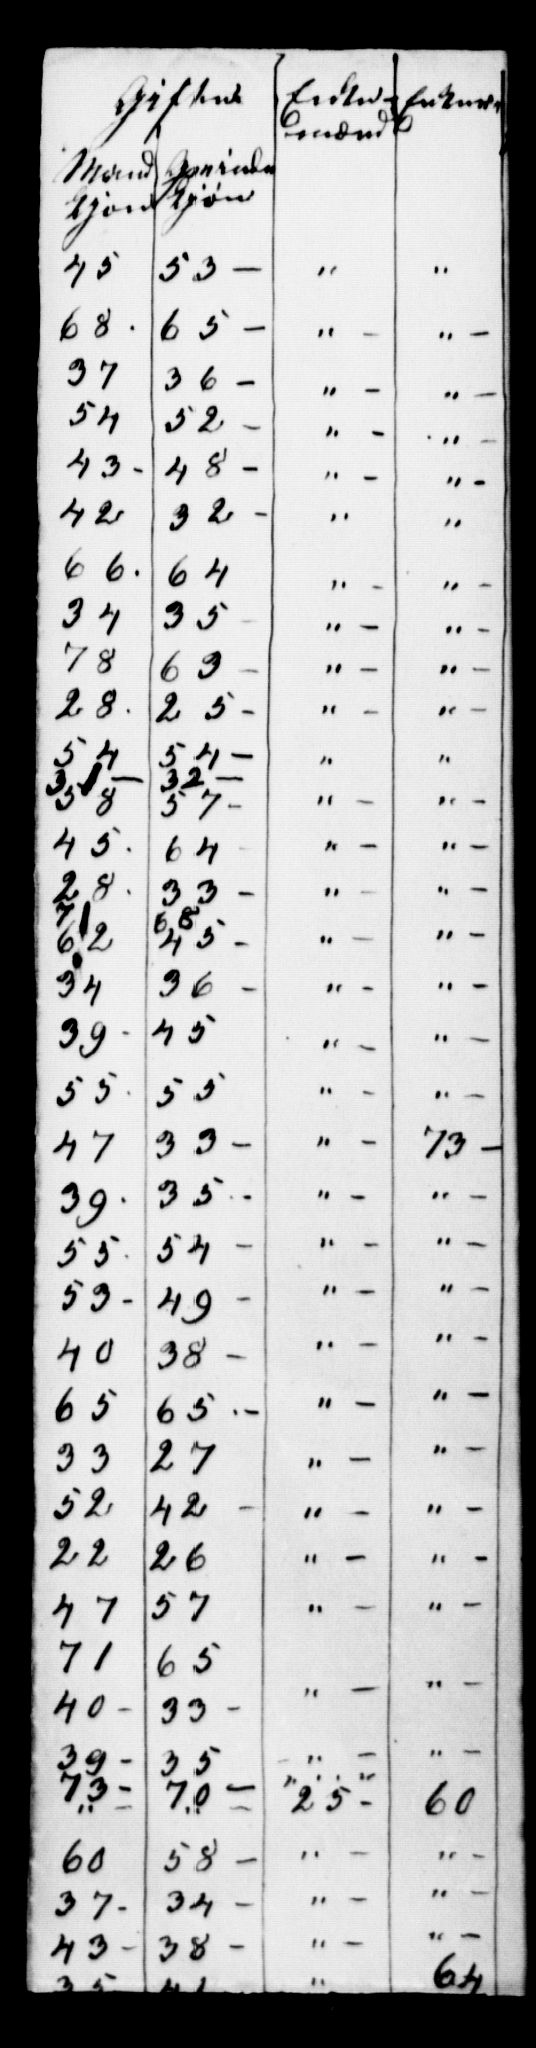 Gifte Enke- Enker
mænd
Mand Qvinde
Kjøn Kjøn
45 53 — " "
68 . 65 — " — " —
37 36 — " — " —
54 52 — " — " —
43 - 48 — " — " —
42 32 — " "
66 . 64 " — " —
34 35 — " — " —
78 63 — " — " —
28 . 25 — " — " —
54 54 — " "
31 — 32 —
58 57 — " — " —
45 . 64 " — " —
28 . 33 — " — " —
71 68
62 45 — " — " —
34 36 — " — " —
39 - 45 " — " —
55 . 55 " — " —
47 33 — " — 73 —
39 . 35 — " — " —
55 . 54 — " — " —
53 - 49 — " — " —
40 38 — " — " —
65 65 . — " — " —
33 27 " — " —
52 42 — " — " —
22 26 " — " —
47 57 " — " —
71 65
40 - 33 — " — " —
39 - 35 " — " —
73 - 70 — " "
" — " — 25 - 60
60 58 — " — " —
37 - 34 — " — " —
43 - 38 — " — " —
35 41 " 64